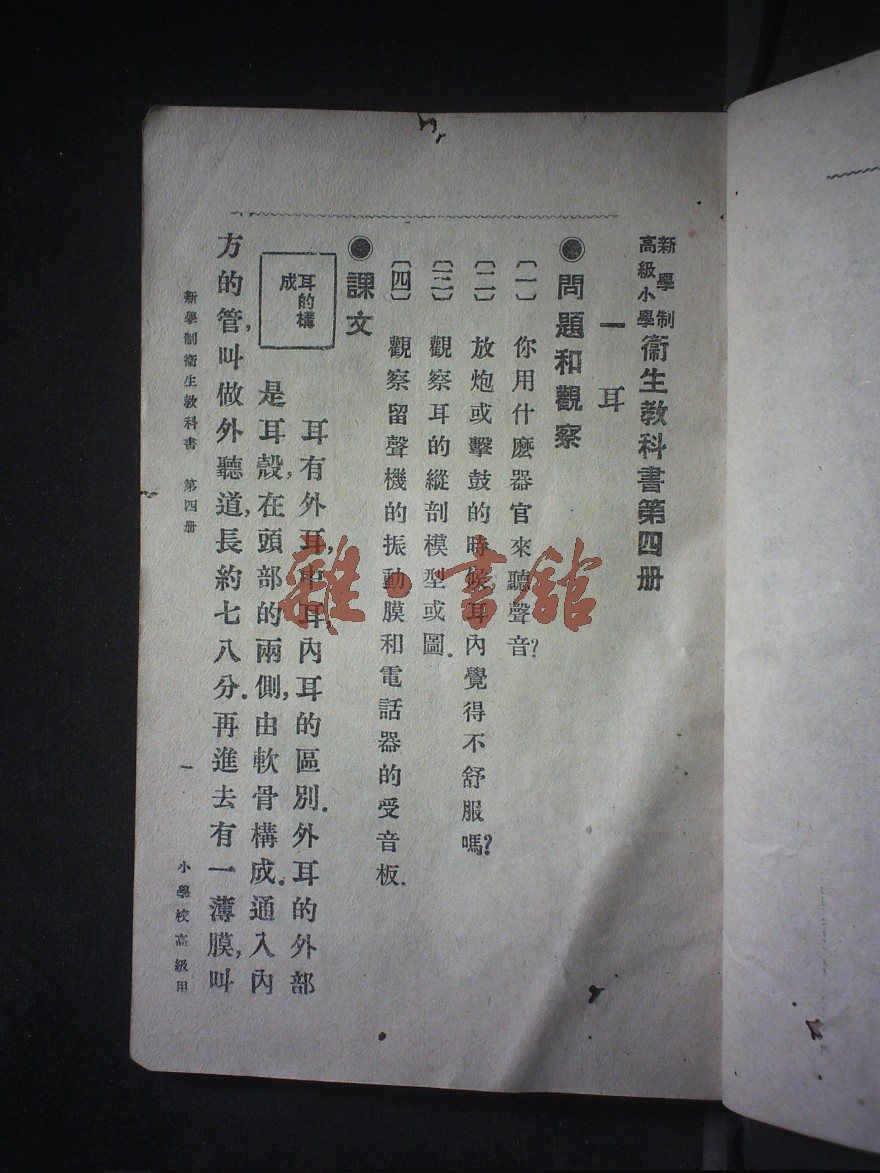 新學制
高級小學
衞生教科書第四册
一 耳
● 問題和觀察
〔一〕 你用什麽器官來聽聲音?
〔二〕 放炮或擊鼓的時候,耳內覺得不舒服嗎?
〔三〕 觀察耳的縱剖模型或圖.
〔四〕 觀察留聲機的振動膜和電話器的受音板.
● 課文
耳的構
成
耳有外耳,中耳,內耳的區別.外耳的外部
是耳殼,在頭部的兩側,由軟骨構成.通入內
方的管,叫做外聽道,長約七八分.再進去有一薄膜,叫
新學制衞生教科書 第四册
一
小學校高級用
雜·書館